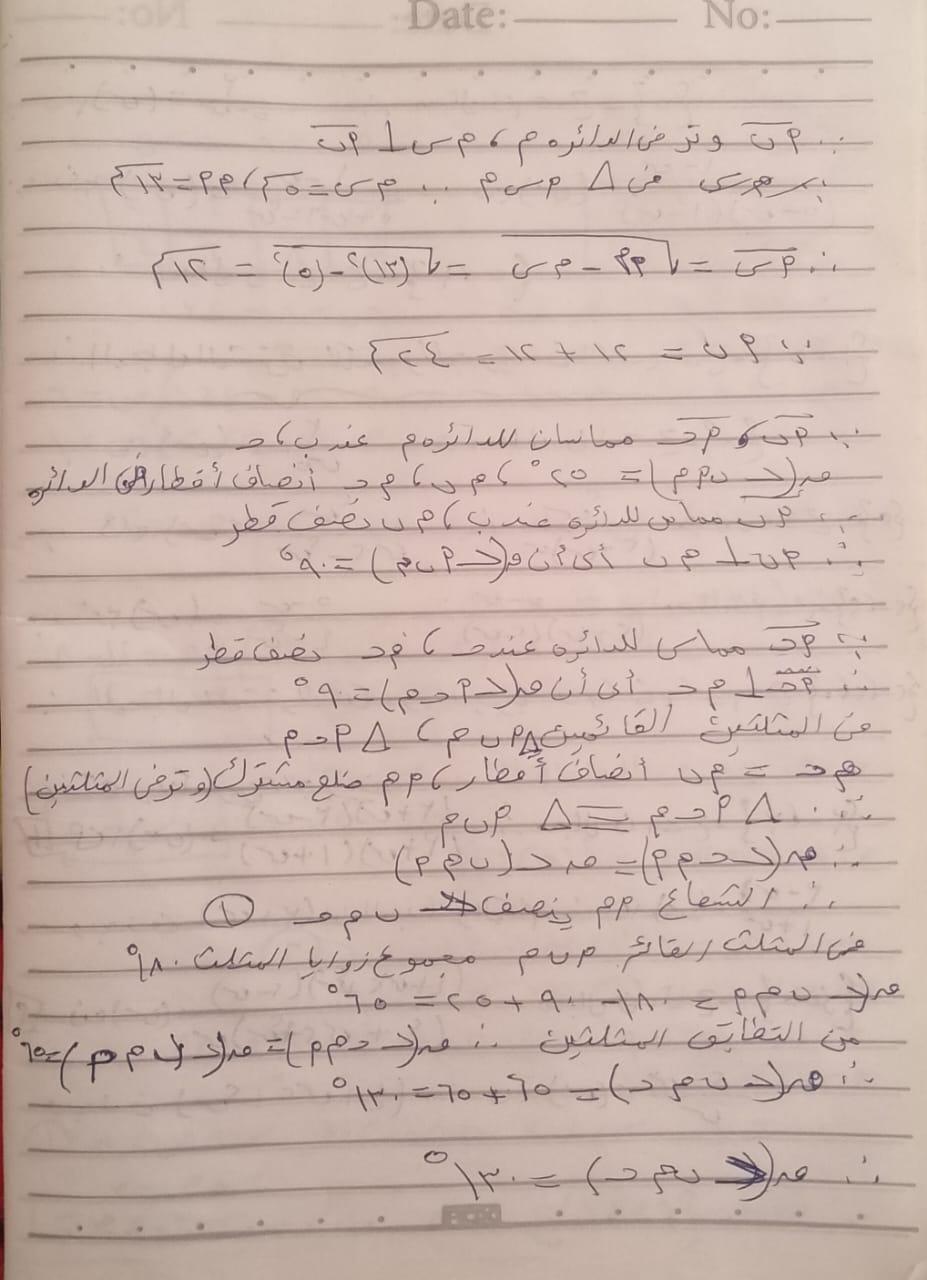 Date: No:
∵ أب وتر في الدائرة م ، م س ⊥ أب
∵ م س = ٥ ، أ م = ١٣
∴ أس = √(١٣)² − (٥)² = ١٢
∵ أ ب = ١٢ + ١٢ = ٢٤
∵ أب و أحـ مماسان للدائره م عند ب ، حـ
ق(∠ ب أ م) = ٢٥° ، م ب ، م حـ أنصاف أقطار في الدائره
∵ أب مماس للدائره عند ب ، م ب نصف قطر
∴ أب ⊥ م ب أي أن ق(∠ أ ب م) = ٩٠°
∵ أحـ مماس للدائره عند حـ ، م حـ نصف قطر
∴ أحـ ⊥ م حـ أي أن ق(∠ أ حـ م) = ٩٠°
في المثلثين القائمين △ أ ب م ، △ أ حـ م
م حـ = م ب أنصاف أقطار ، أ م ضلع مشترك (وتر في المثلثين)
∴ △ أ حـ م ≡ △ أ ب م
∴ ق(∠ حـ م أ) = ق ∠ (ب م أ)
∴ الشعاع أ م ينصف ∠ ب م حـ ①
في المثلث القائم أ ب م مجموع زوايا المثلث ١٨٠°
ق(∠ ب م أ = ١٨٠ − ٩٠ + ٢٥ = ٦٥°
من التطابق المثلثين ∴ ق(∠ حـ م أ) = ق(∠ ب م أ) = ٦٥°
∴ ق(∠ ب م حـ) = ٦٥ + ٦٥ = ١٣٠°
∴ ق(∠ ب م حـ) = ١٣٠°